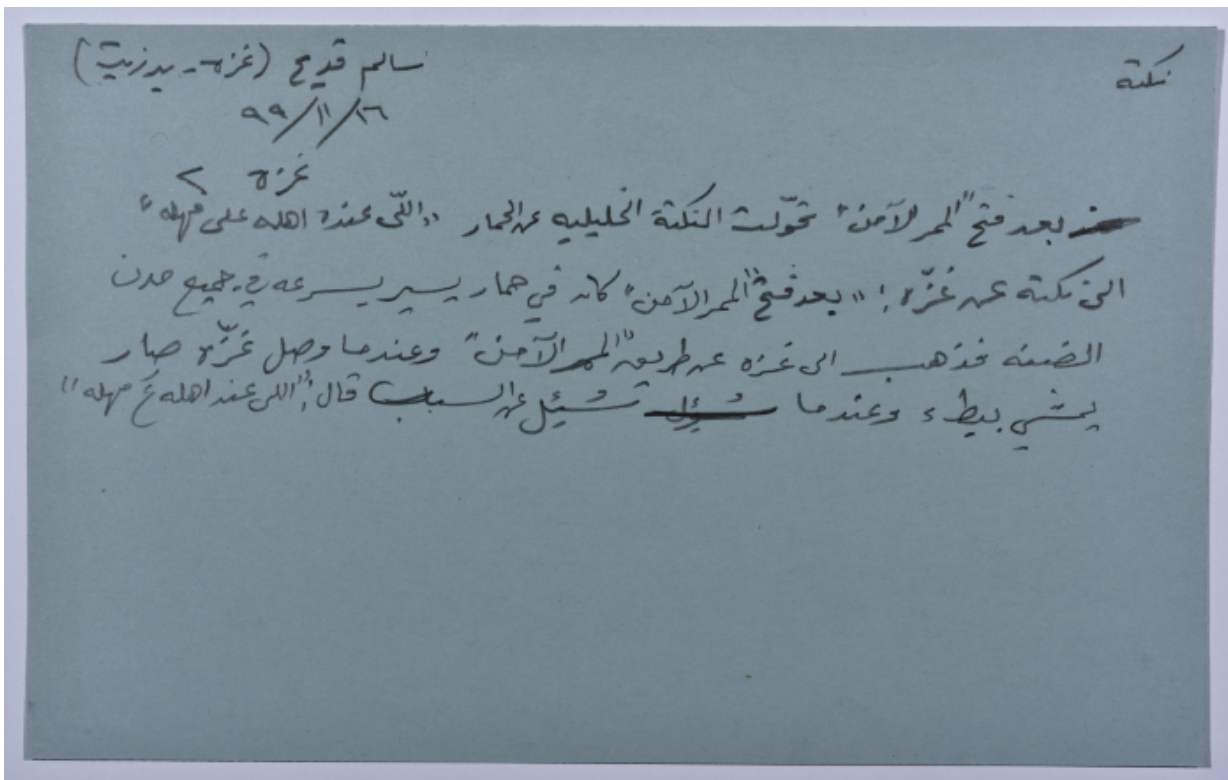 نكتة
سالم قديح (غزة - بيرزيت)
١٦/١١/٩٩
غزة >
بعد فتح "الممر الآمن" تحوّلت النكتة الخليليه عن الحمار "اللّى عنده اهله على مهله"
الى نكتة عن غزّة: "بعد فتح "الممر الآمن" كان في حمار يسير بسرعه في جميع مدن
الضفه فذهب الى غزه عن طريق "الممر الآمن" وعندما وصل غزّة صار
يمشي ببطء وعندما سُئل عن السبب قال: "اللى عند اهله ع مهله"